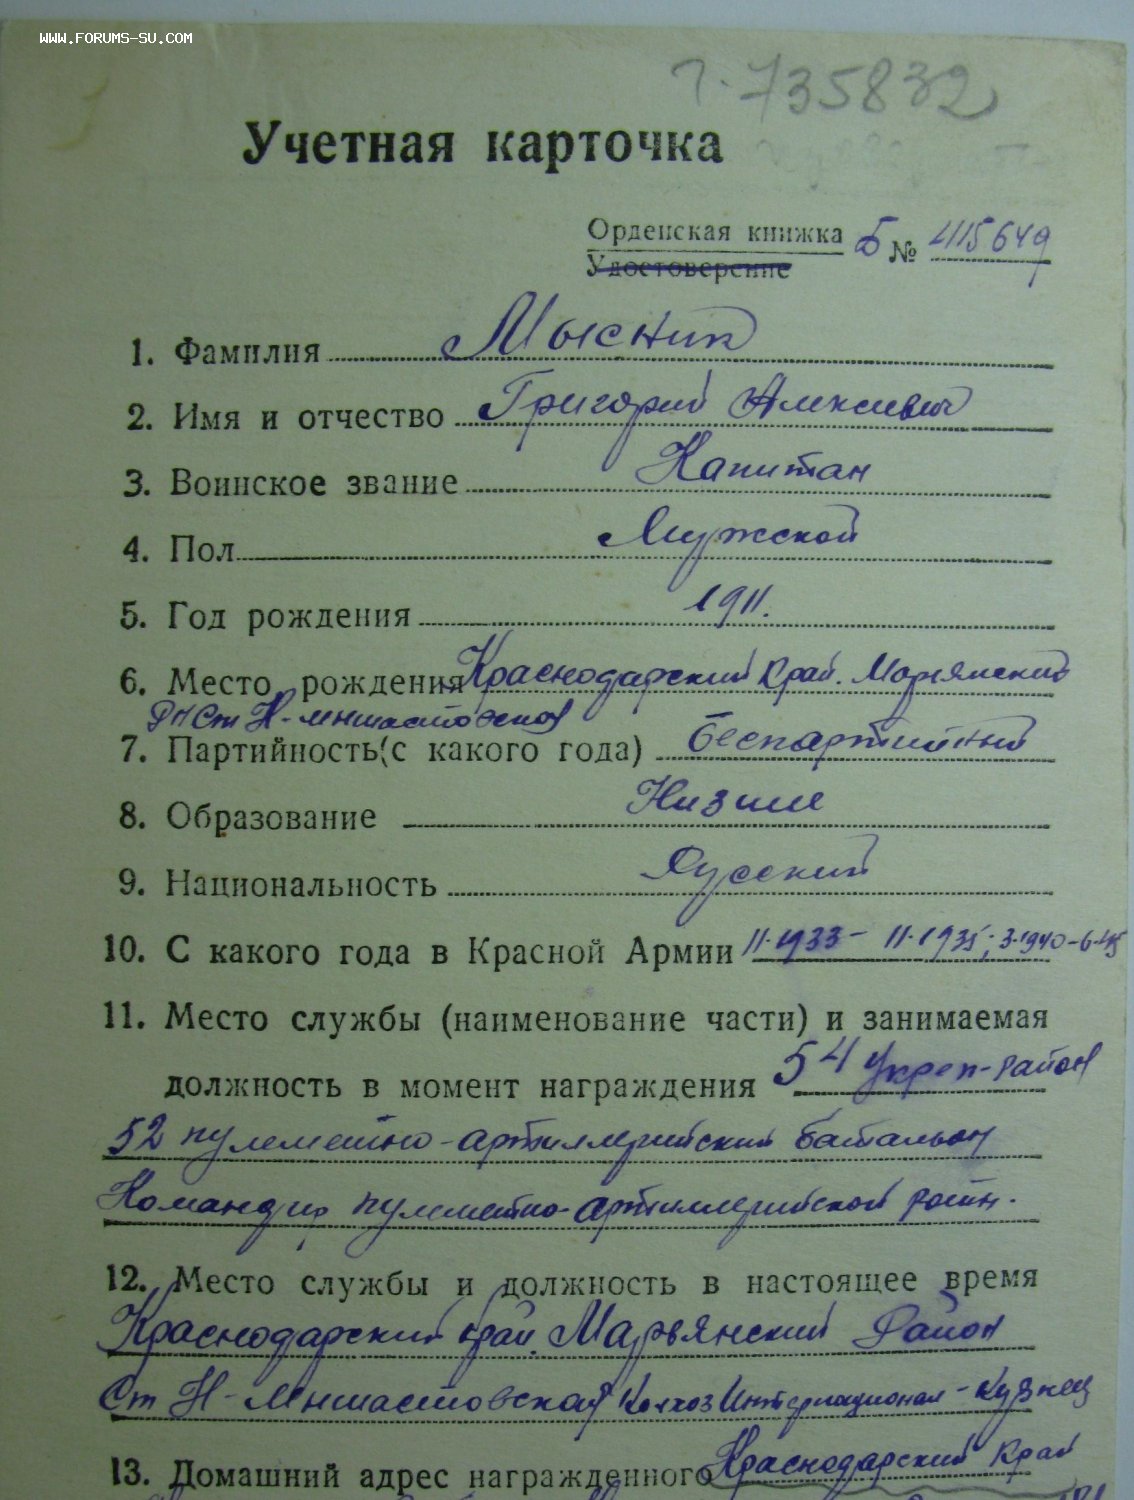 WWW.FORUMS-SU.COM
Г-735832
Учетная карточка
Орденская книжка Б № 4115649
Удостоверение
1. Фамилия Мысник
2. Имя и отчество Григорий Алексеевич
3. Воинское звание Капитан
4. Пол Мужской
5. Год рождения 1911.
6. Место рождения Краснодарский Край. Марьянский
Р-н Ст Н-Мышастовская
7. Партийность (с какого года) беспартийный
8. Образование Низшее
9. Национальность Русский
10. С какого года в Красной Армии 11.1933- 11.1935; 3.1940-6.45
11. Место службы (наименование части) и занимаемая
должность в момент награждения 54 Укреп-район
52 пулеметно-артиллерийский батальон
Командир пулеметно-артиллерийской роты.
12. Место службы и должность в настоящее время
Краснодарский край. Марьянский Район
Ст Н-Мышастовская Колхоз Интернационал-Кузнец
13. Домашний адрес награжденного Краснодарский Край